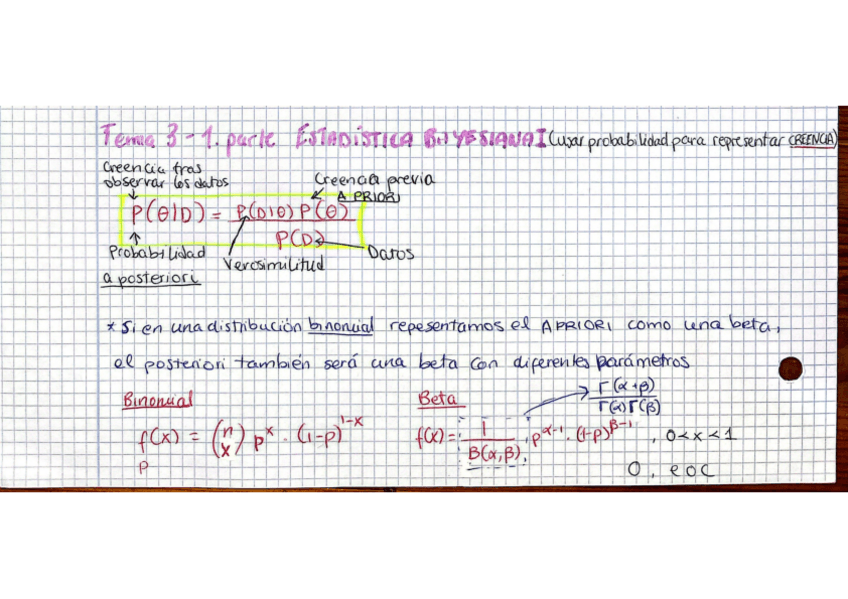 Tema 3 - 1. parte ESTADÍSTICA BAYESIANA I (usar probabilidad para representar CREENCIA)
Creencia tras
observar los datos
Creencia previa
A PRIORI
P(θ|D) = P(D|θ) P(θ) / P(D)
Probabilidad
a posteriori
Verosimilitud
Datos
* Si en una distribución binomial repesentamos el A PRIORI como una beta,
el posteriori también será una beta con diferentes parámetros
Binomial
Beta
Γ(α+β) / Γ(α)Γ(β)
f(x) = (n x) p^x · (1-p)^1-x
p
f(x) = 1 / B(α,β) · p^α-1 · (1-p)^β-1 , 0<x<1
0, eoc